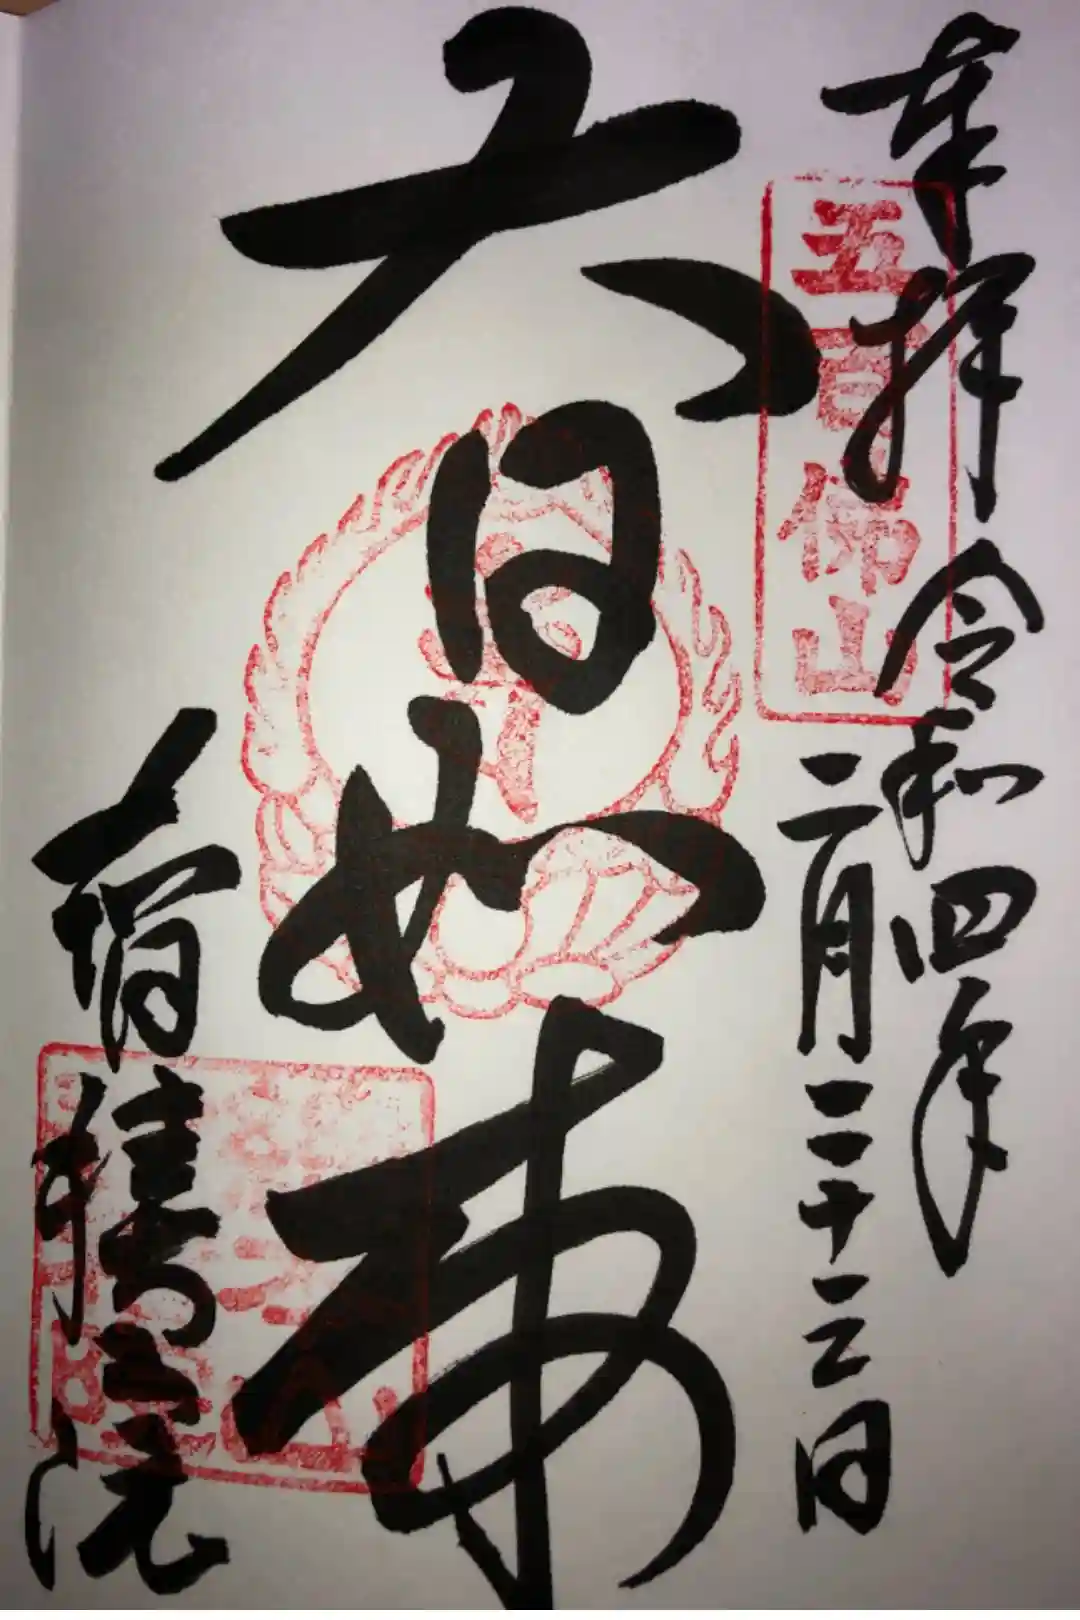 奉拝 令和四年
二月二十三日
五百佛山
大日如来
智積院